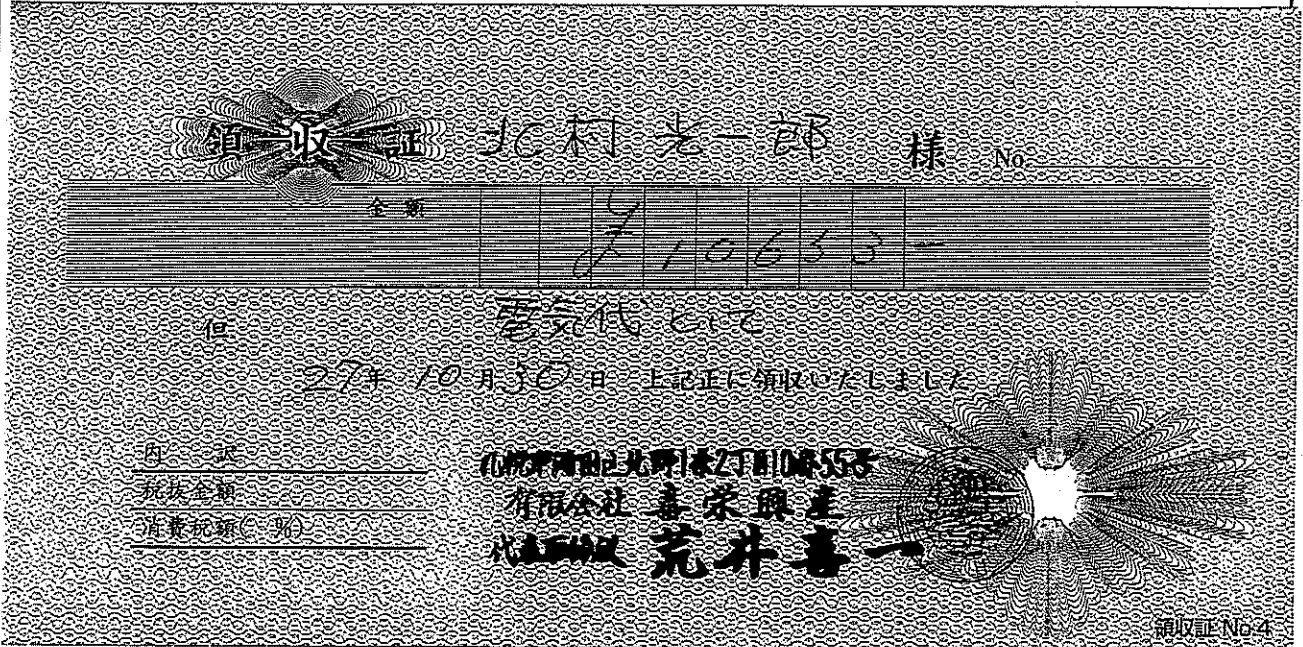 領収証 北村光一郎 様 No.
金額 ¥10653-
但 電気代として
27年10月30日 上記正に領収いたしました
内訳
税抜金額
消費税額( %)
北野1条2丁目10番55号
有限会社 喜栄興産
代表取締役 荒井喜一
領収証 No.4